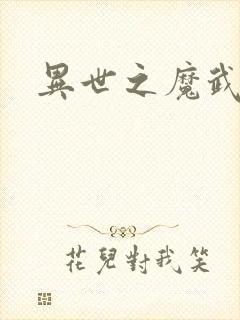 異世之魔武
花兒對我笑